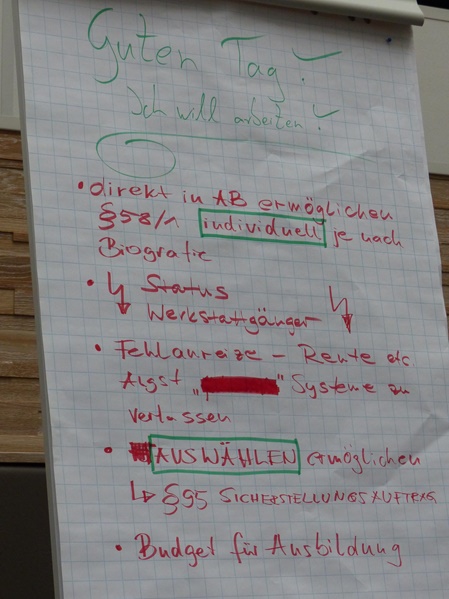 Guten Tag!
Ich will arbeiten!
• direkt in AB ermöglichen
§58/1 individuell je nach
Biografie
• Status
Werkstattgänger
• Fehlanreize – Rente etc
Algst " " Systeme zu
verlassen
• AUSWÄHLEN ermöglichen
↳ §95 SICHERSTELLUNGSAUFTRAG
• Budget für Ausbildung